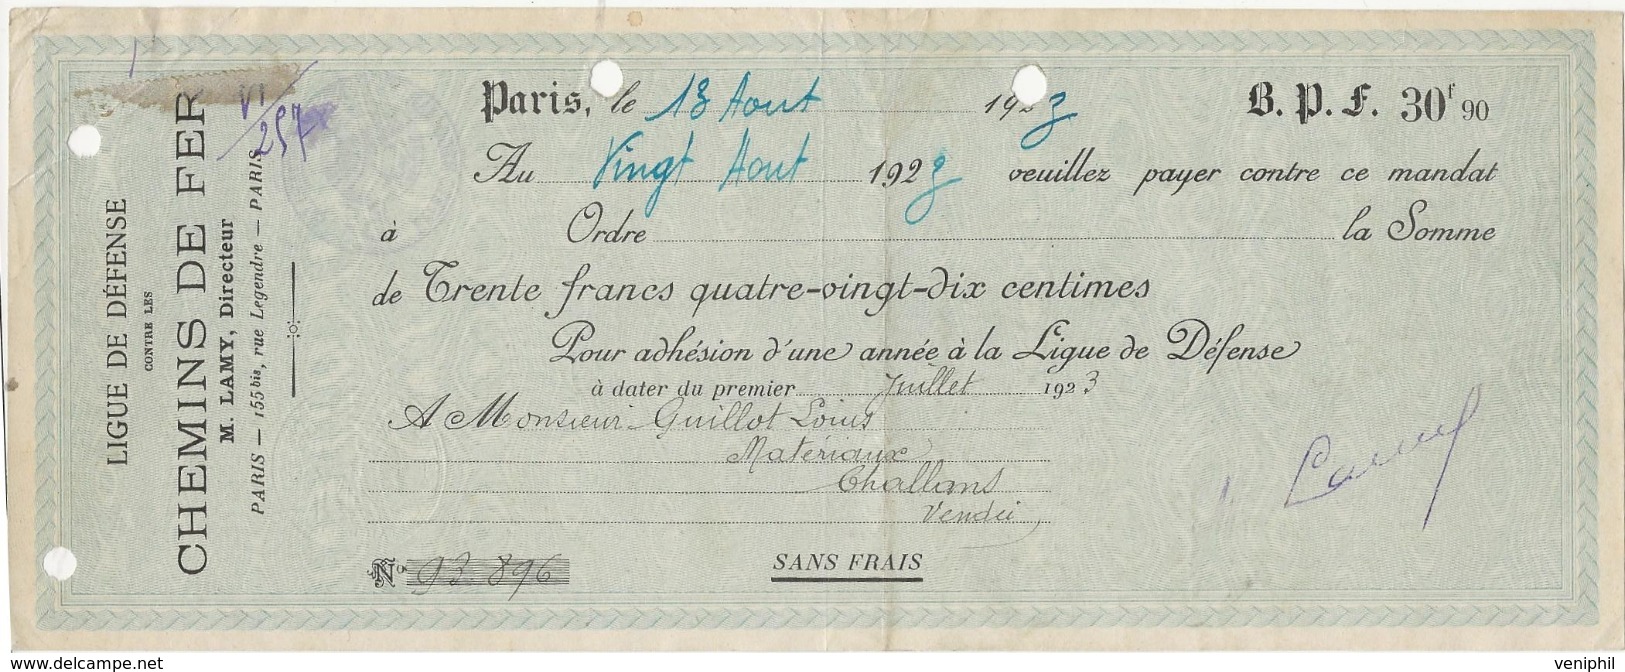 LIGUE DE DÉFENSE
CONTRE LES
CHEMINS DE FER
M. LAMY, Directeur
PARIS — 155 bis, rue Legendre — PARIS
VI/257
Paris, le 13 Aout 1923 B. P. F. 30f 90
Au Vingt Aout 1923 veuillez payer contre ce mandat
à Ordre la Somme
de Trente francs quatre-vingt-dix centimes
Pour adhésion d'une année à la Ligue de Défense
à dater du premier Juillet 1923
A Monsieur Guillot Louis
Matériaux
Challans
Vendée
No 93 896 SANS FRAIS
www.delcampe.net veniphil